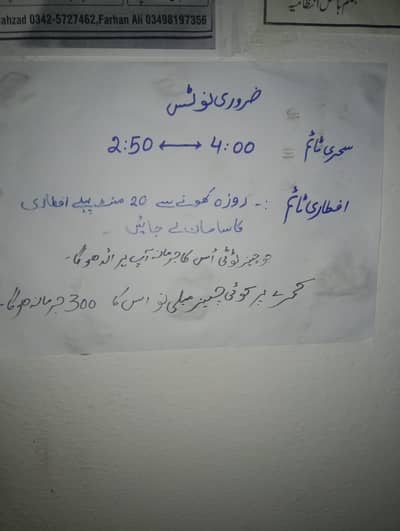 ahzad 0342-5727462,Farhan Ali 03498197356
ضروری نوٹس
سحری ٹائم = 4:00 ⟷ 2:50
افطاری ٹائم :- روزہ کھونے سے 20 منٹ پہلے افطاری
کا سامان لے جائیں -
جو چیز ٹوٹی اُس کا جرمانہ آپ پر ادھوگا۔
کمرے پر کوئی چیز ملی تو اس کا 300 جرمانہ ھوگا۔